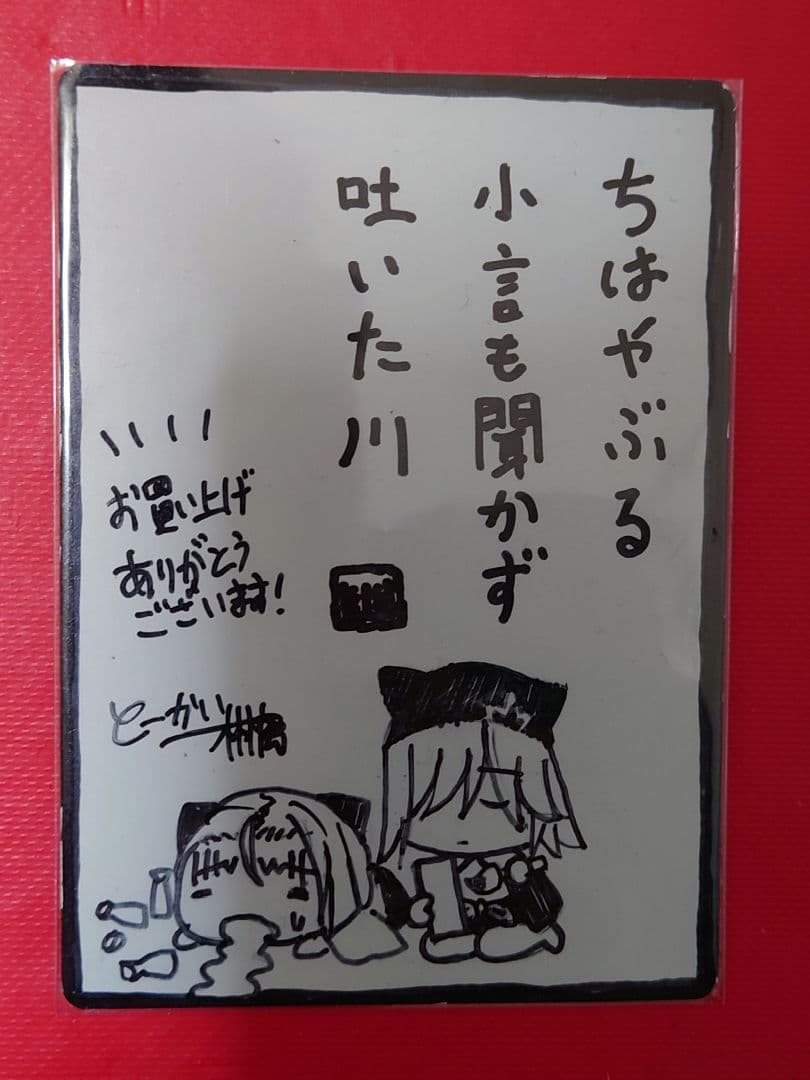 ちはやぶる
小言も聞かず
吐いた川
お買い上げ
ありがとう
ございます!
とーかい